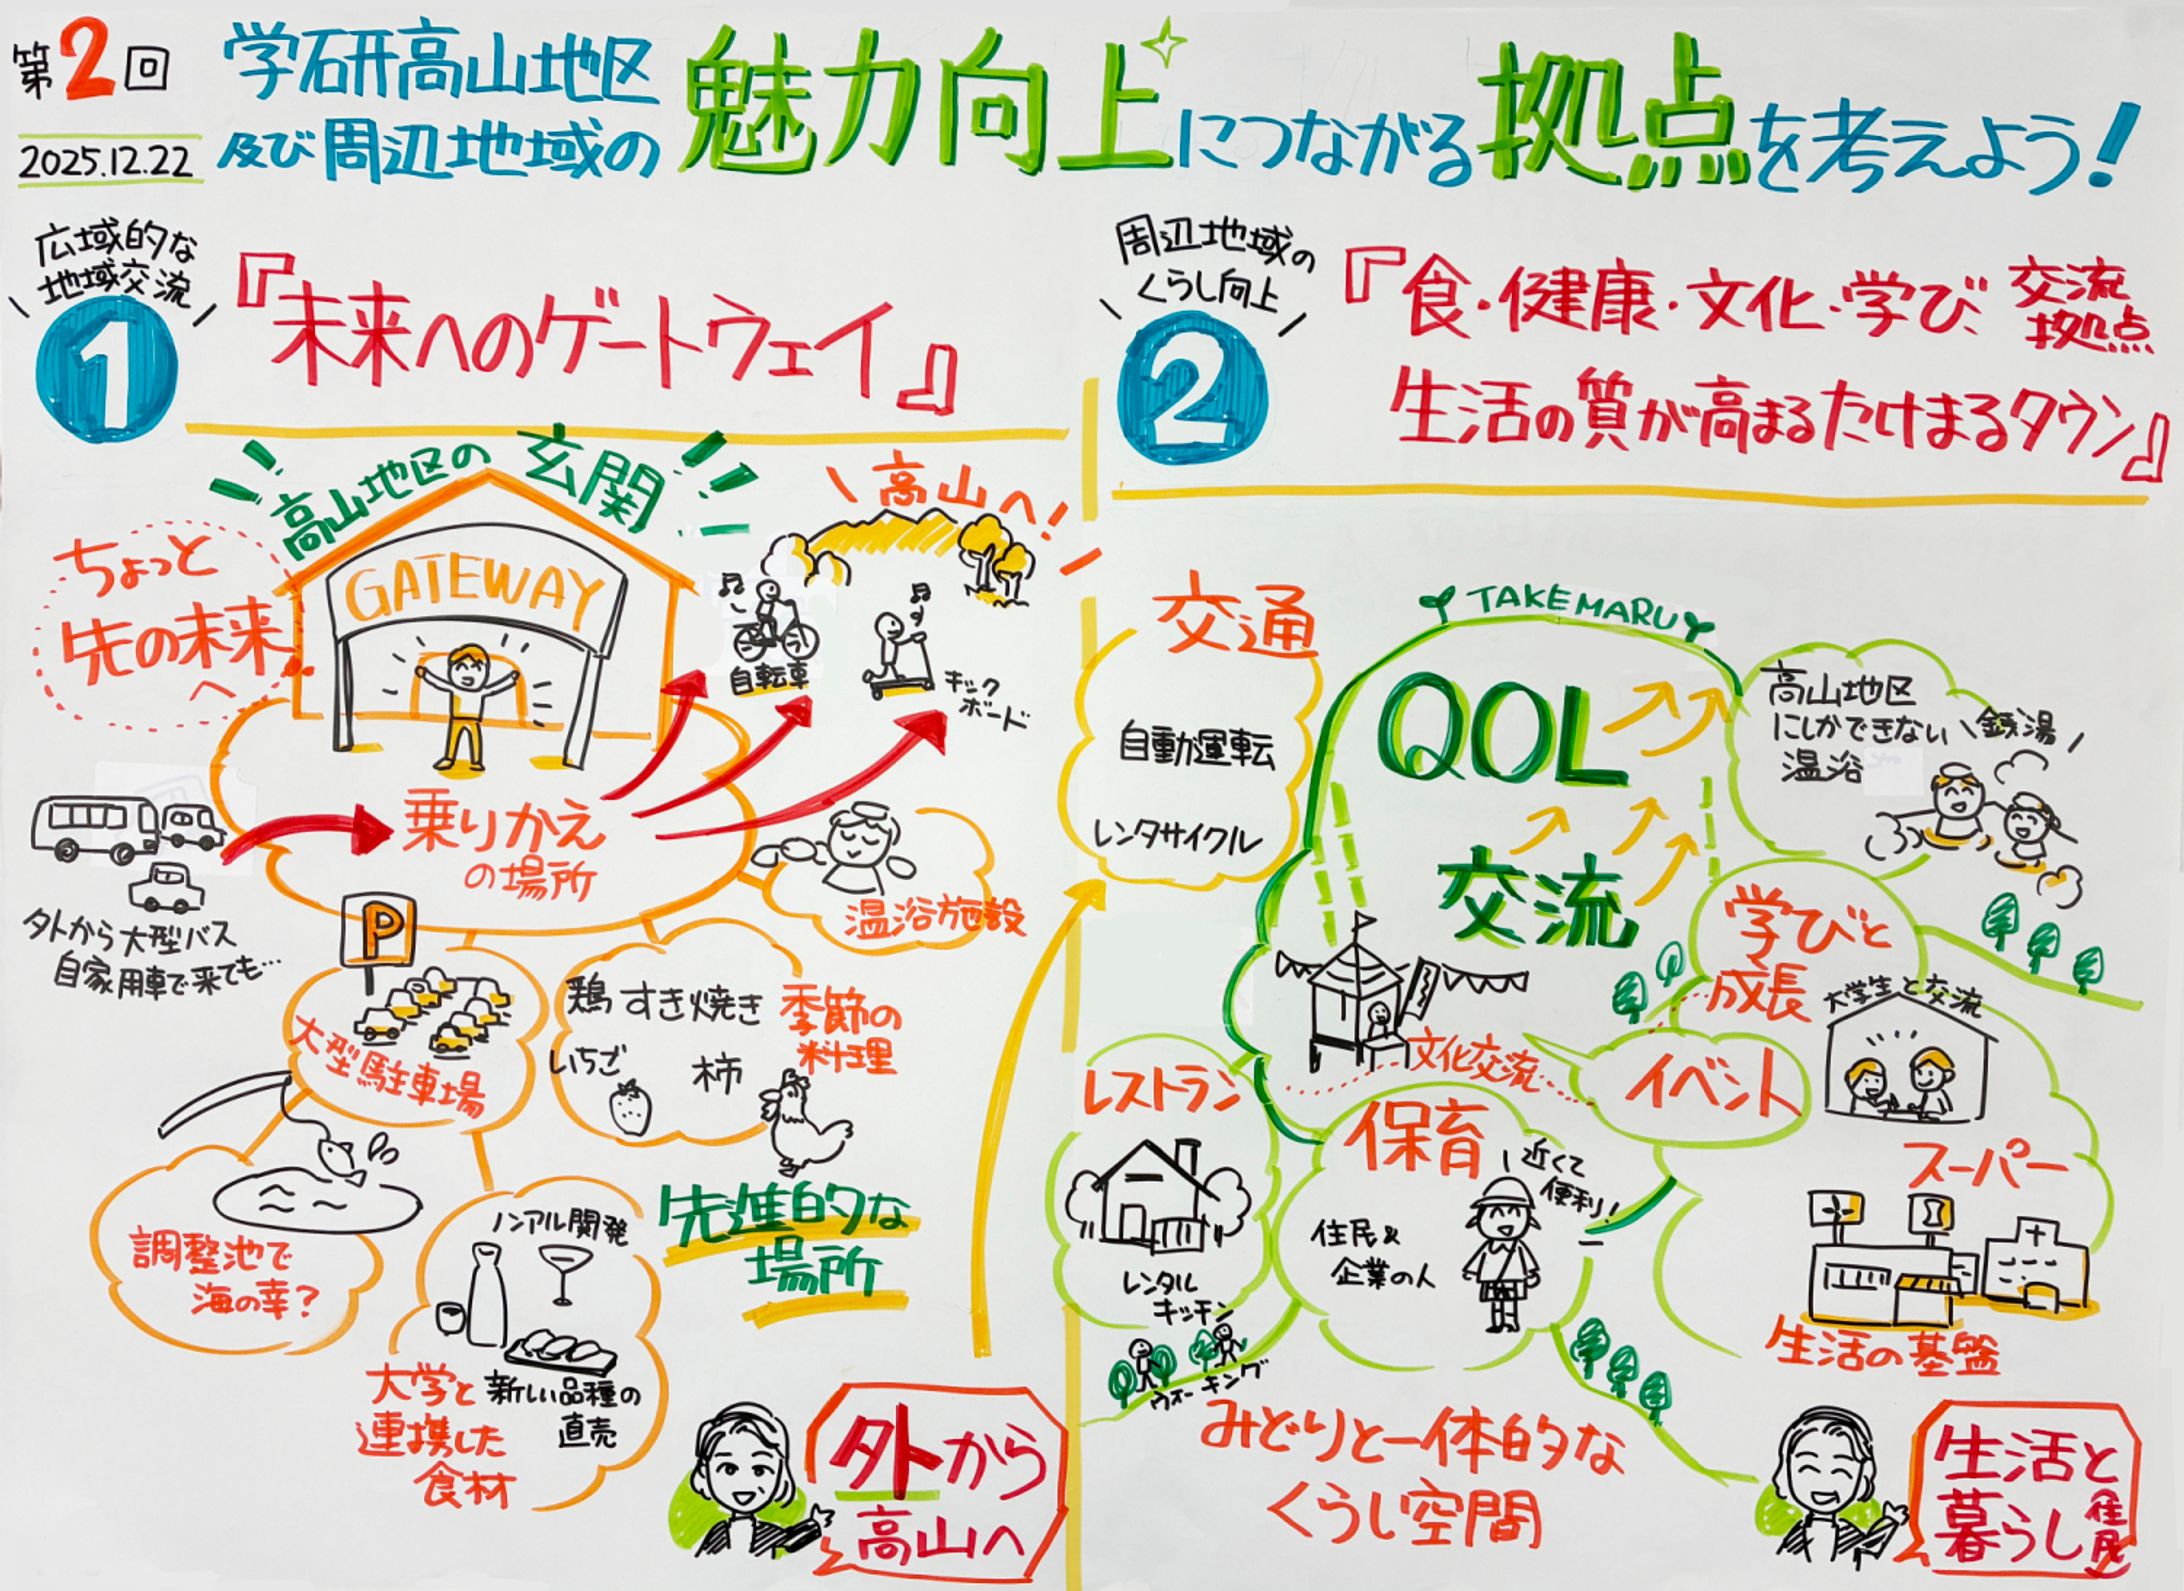 第2回
2025.12.22
学研高山地区
及び周辺地域の
魅力向上につながる拠点を考えよう!
広域的な
地域交流
1
『未来へのゲートウェイ』
高山地区の玄関
ちょっと
先の未来
へ
GATEWAY
高山へ!
自転車
キック
ボード
乗りかえ
の場所
外から大型バス
自家用車で来ても…
温浴施設
P
大型駐車場
鶏 すき焼き
いちご
柿
季節の
料理
調整池で
海の幸?
ノンアル開発
新しい品種の
直売
大学と
連携した
食材
先進的な
場所
外から
高山へ
周辺地域の
くらし向上
2
『食・健康・文化・学び 交流
拠点
生活の質が高まるたけまるタウン』
交通
自動運転
レンタサイクル
TAKEMARU
QOL
交流
高山地区
にしかできない
温浴
銭湯
学びと
成長
大学生と交流
文化交流
イベント
レストラン
レンタル
キッチン
保育
近くて
便利!
住民&
企業の人
スーパー
生活の基盤
ウォーキング
みどりと一体的な
くらし空間
生活と
暮らし
住民